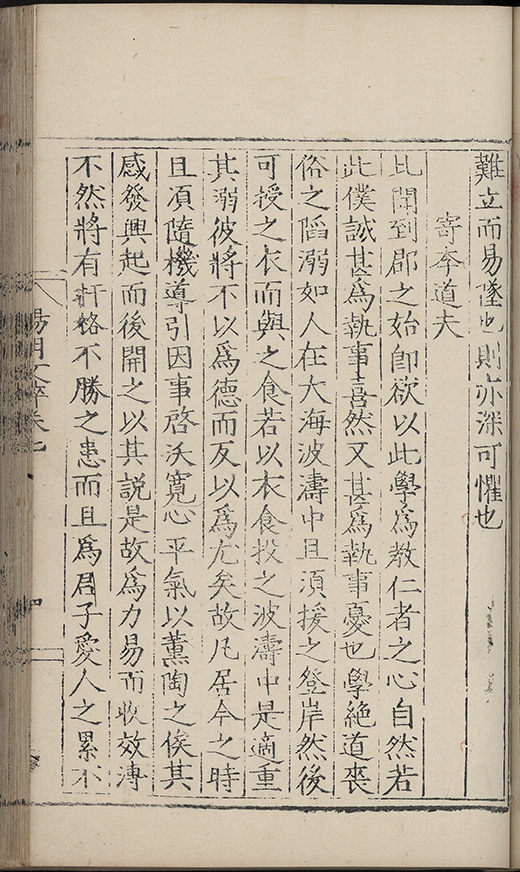 難立而易墜也則亦深可懼也
寄李道夫
比聞到郡之始即欲以此學爲教仁者之心自然若
此僕誠甚爲執事喜然又甚爲執事憂也學絕道喪
俗之陷溺如人在大海波濤中且須援之登岸然後
可授之衣而與之食若以衣食投之波濤中是適重
其溺彼將不以爲德而反以爲尤矣故凡居今之時
且須隨機導引因事啓沃寬心平氣以薰陶之俟其
感發興起而後開之以其說是故爲力易而收效溥
不然將有扞格不勝之患而且爲君子愛人之累不
陽明文粹卷七
四